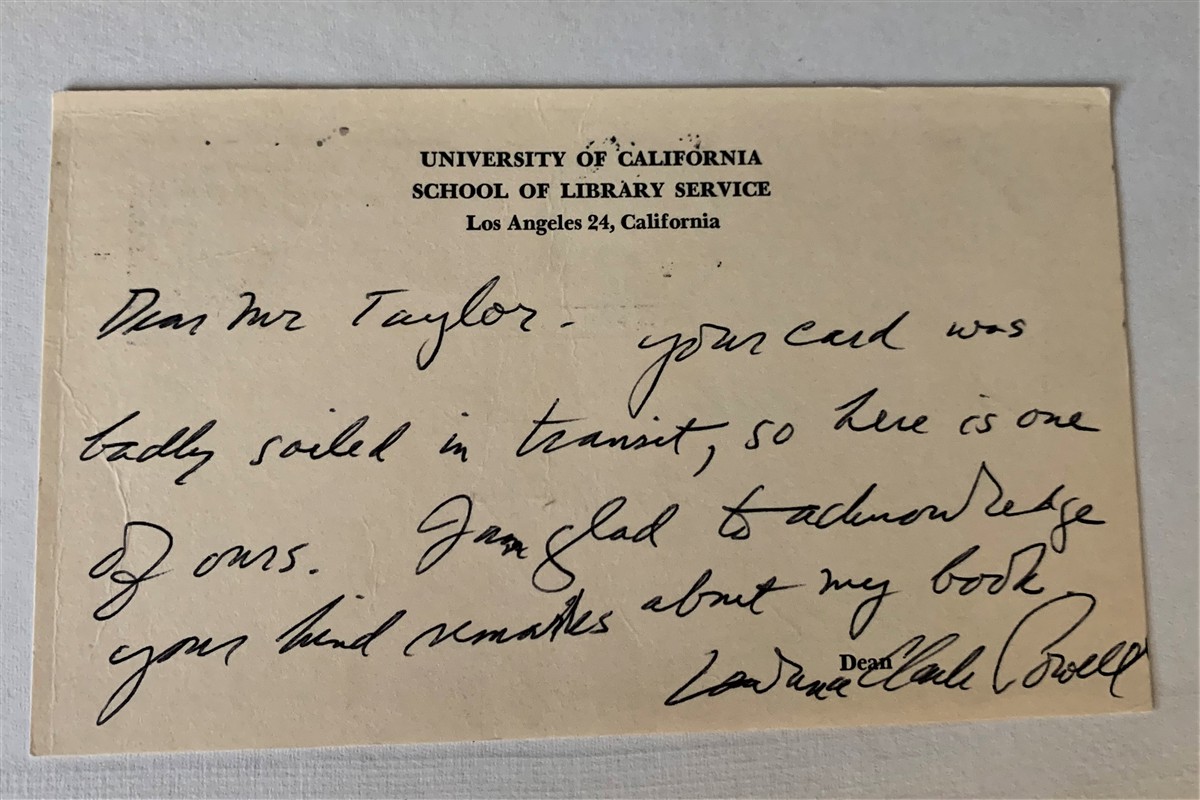 UNIVERSITY OF CALIFORNIA
SCHOOL OF LIBRARY SERVICE
Los Angeles 24, California
Dear Mr Taylor. your card was
badly soiled in transit, so here is one
of ours. I am glad to acknowledge
your kind remarks about my book.
Dean
Lawrence Clark Powell